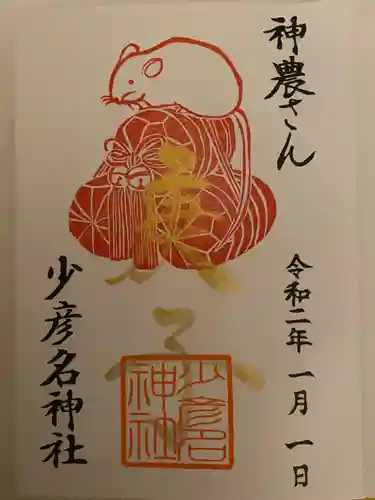 神農さん
庚子
少彦名神社
少彦名
神社
令和二年一月一日